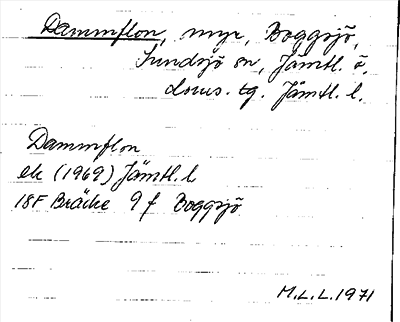 Dammflon, myr, Boggsjö,
Sundsjö sn, Jämtl. ö.
doms. tg. Jämtl. l.
Dammflon
ek (1969) Jämtl. l
18F Bräcke 9 f Boggsjö
M.L.L. 1971